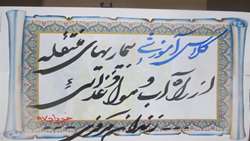 کلاس آموزشی بیماریهای منتقله
از راه آب و مواد غذائی